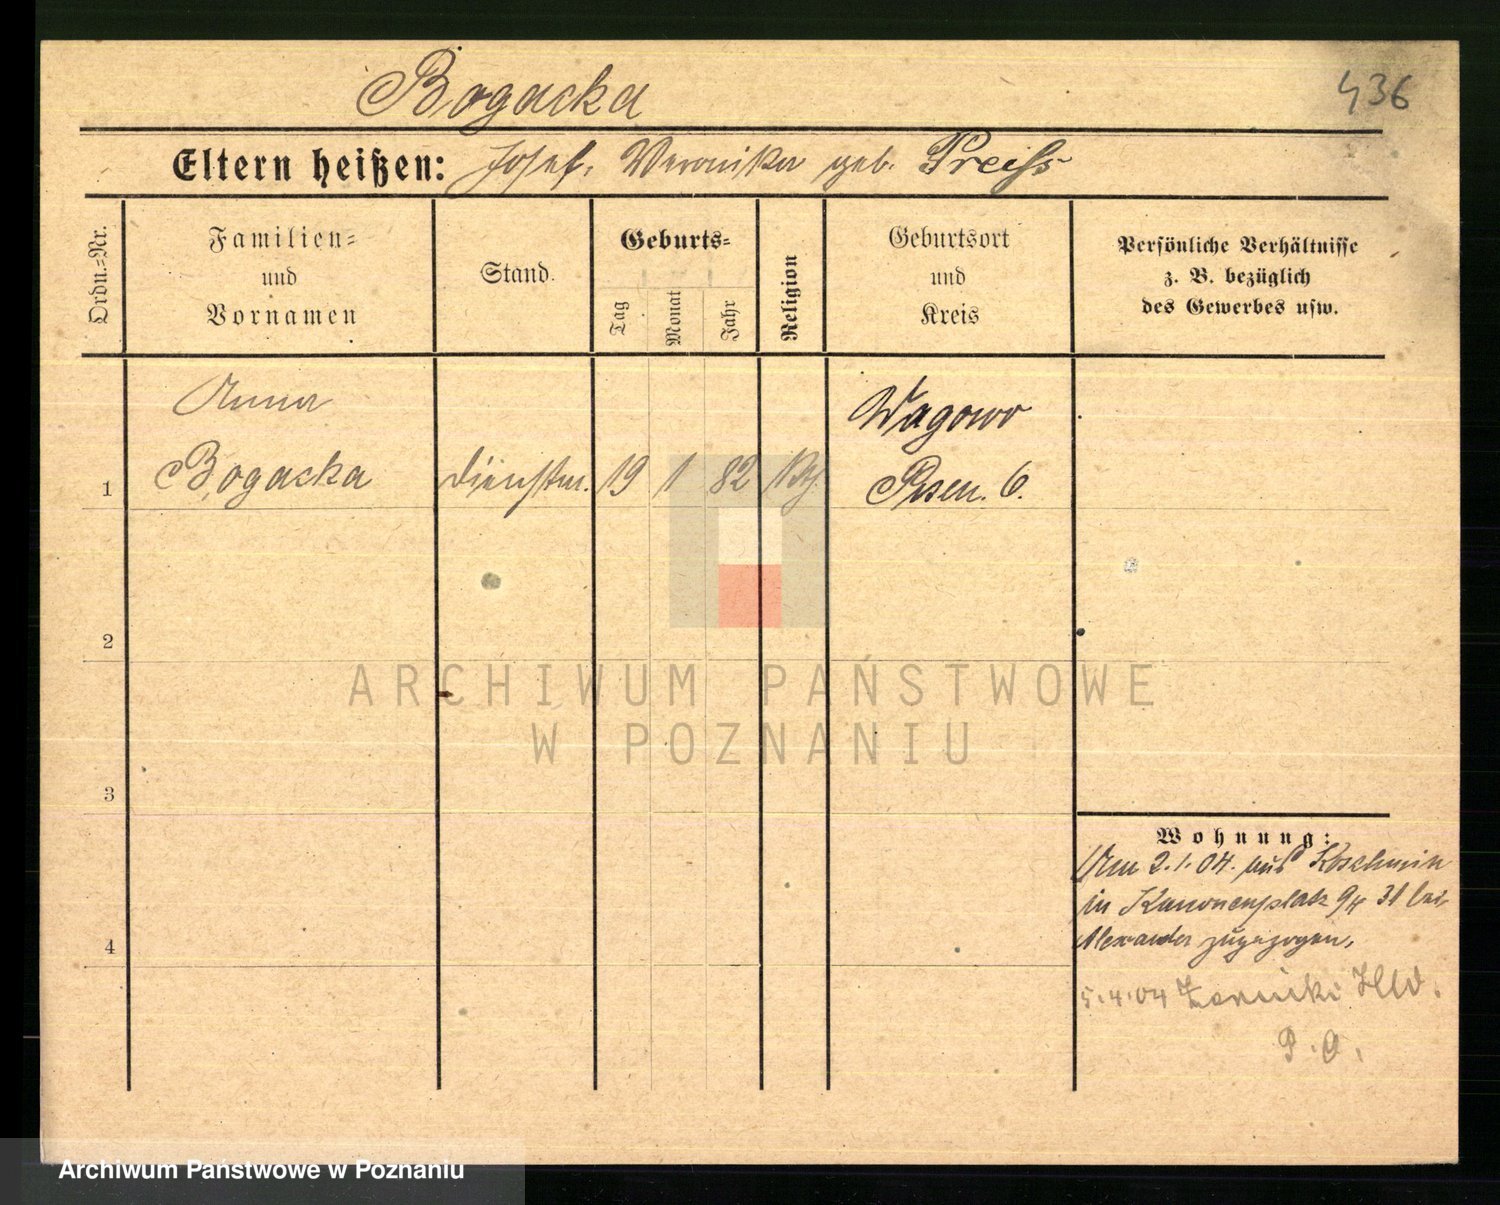 Bogacka
436
Eltern heißen: Josef, Veronika geb. Preiss
Ordn.=Nr.
Familien=
und
Vornamen
Stand.
Geburts=
Tag
Monat
Jahr
Religion
Geburtsort
und
Kreis
Persönliche Verhältnisse
z. B. bezüglich
des Gewerbes usw.
Anna
Wagowo
1 Bogacka dienstm. 19 1 82 kth. Posen. O.
2
3
4
Wohnung:
Am 2.1.04. aus Koschmin
in Kanonenplatz 9 31 bei
Alexander zugezogen,
5.4.04 Zerniki
P. O.
ARCHIWUM PAŃSTWOWE
W POZNANIU
Archiwum Państwowe w Poznaniu